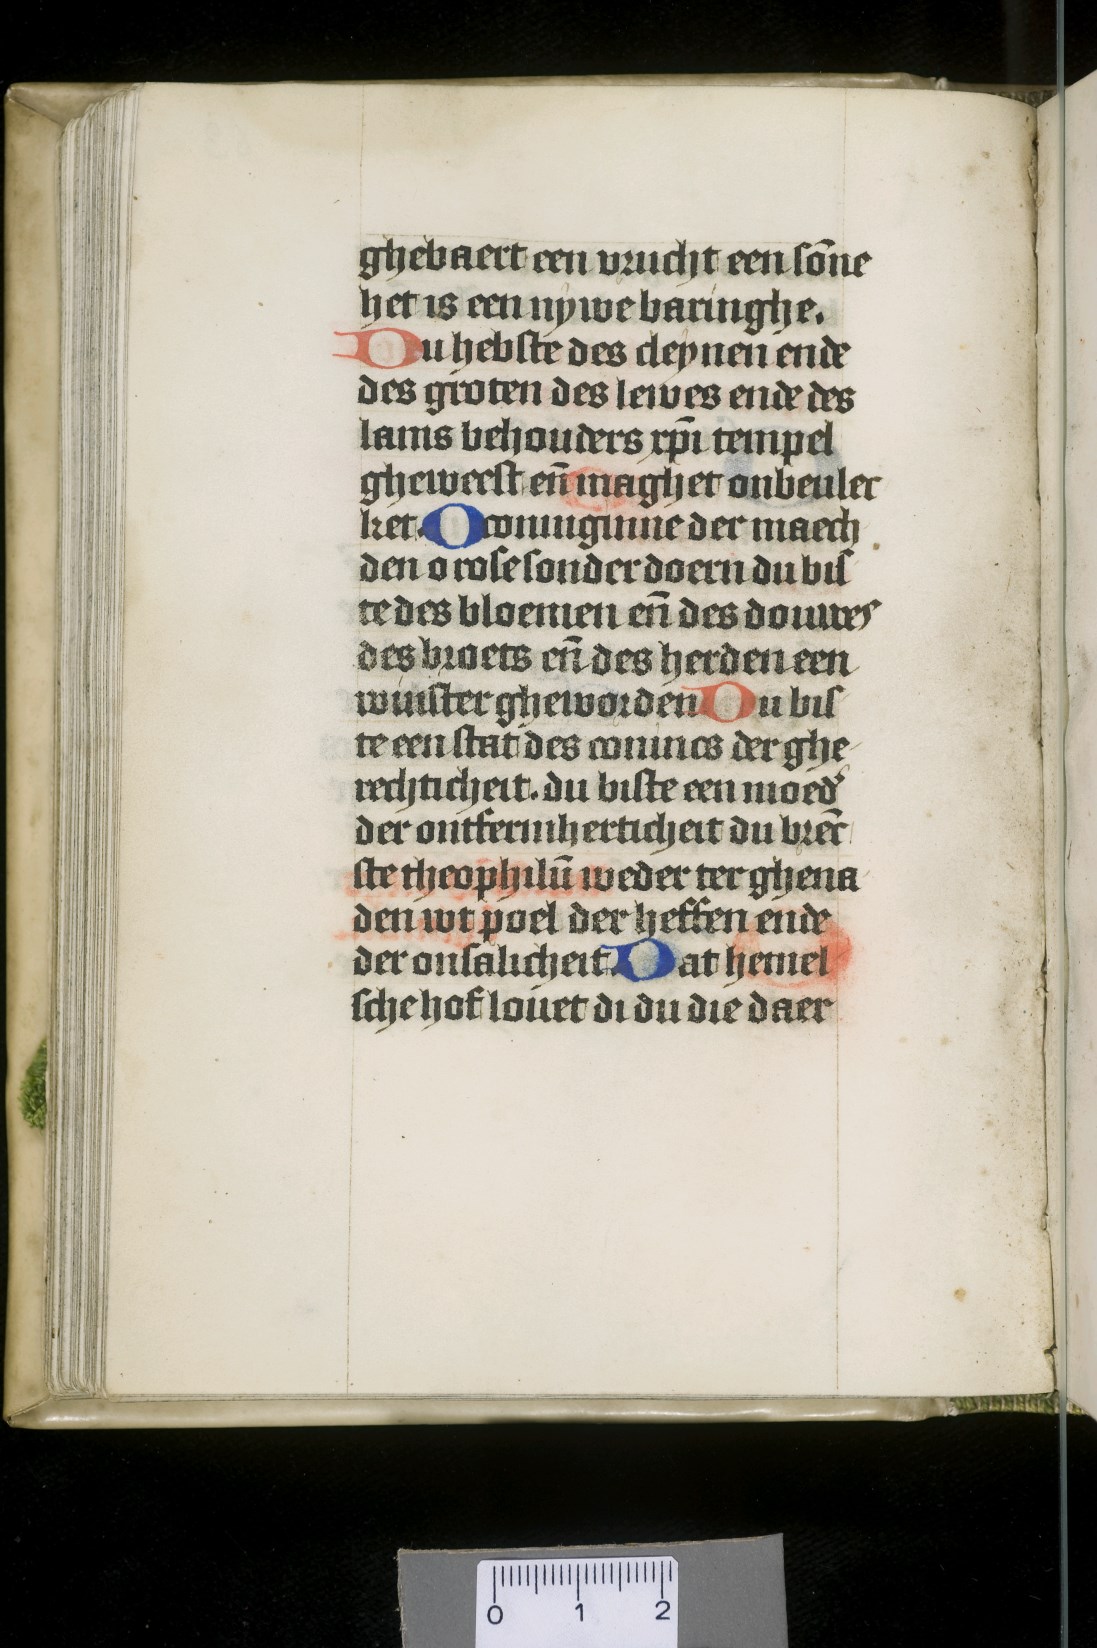 ghebaert een vrucht een sōne
het is een nÿwe baringhe.
Du hebste des cleynen ende
des groten des lewes ende des
lams behouders xp̄i tempel
gheweest en̄ maghet onbeulec
ket. O coninginne der maech
den o rose sonder doern du bis
te des bloemen en̄ des douwes
des broets en̄ des herden een
winster gheworden Du bis
te een stat des conincs der ghe
rechticheit. du biste een moed'
der ontfermherticheit du brēc
ste theophilū weder ter ghena
den wt poel der heffen ende
der onsalicheit. Dat hemel
sche hof louet di du die daer
0 1 2